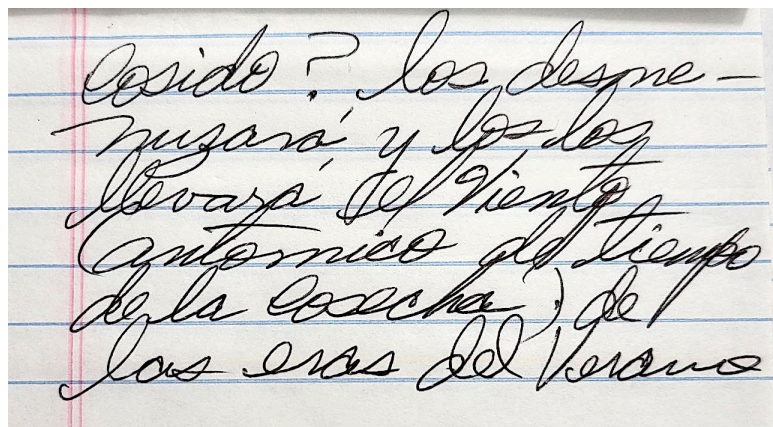 cosido? los desme-
nuzará, y los los
llevará el Viento
(antomico del tiempo
de la cosecha) de
las eras del Verano